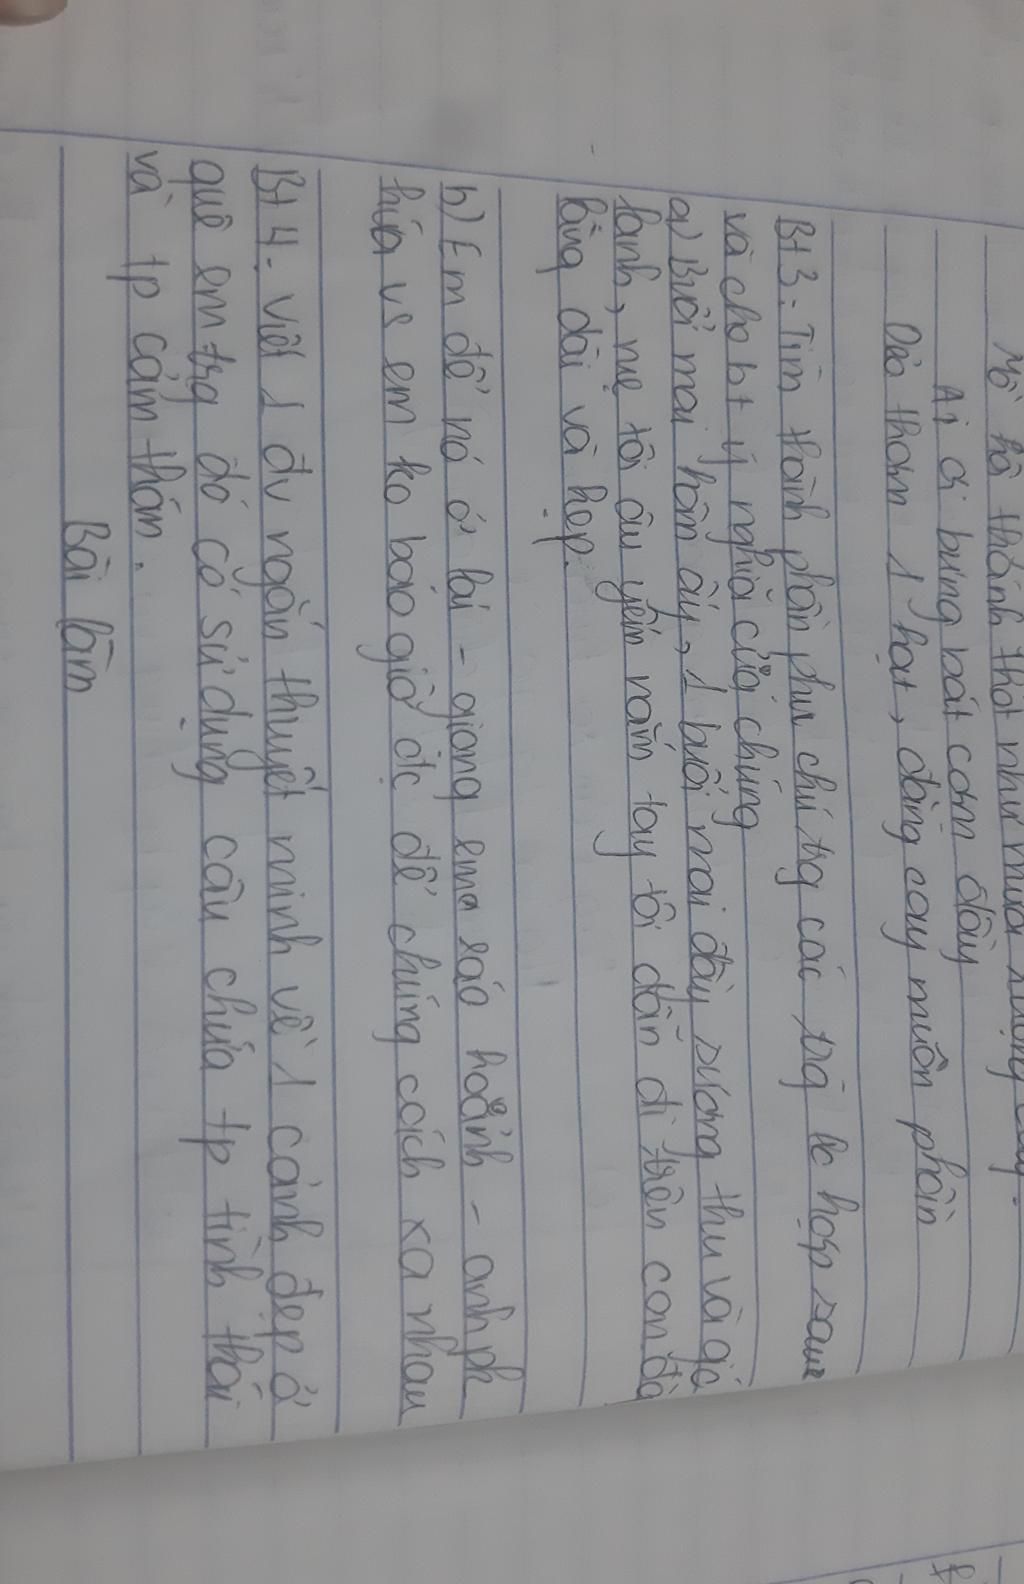 Mồ hôi thánh thót như mưa ruộng cày.
Ai ơi bưng bát cơm đầy
Dẻo thơm 1 hạt, đắng cay muôn phần
Bt3: Tìm thành phần phụ chú trg các trg hợp sau
và cho bt ý nghĩa của chúng
a) Buổi mai hôm ấy, 1 buổi mai đầy sương thu và gió
lạnh, mẹ tôi âu yếm nắm tay tôi dẫn đi trên con đ
làng dài và hẹp.
b) Em để nó ở lại - giọng em ráo hoảnh - anh ph
hứa vs em ko bao giờ đc để chúng cách xa nhau
Bt 4. Viết 1 đv ngắn thuyết minh về 1 cảnh đẹp ở
quê em trg đó có sử dụng câu chứa tp tình thái
và tp cảm thán.
Bài làm